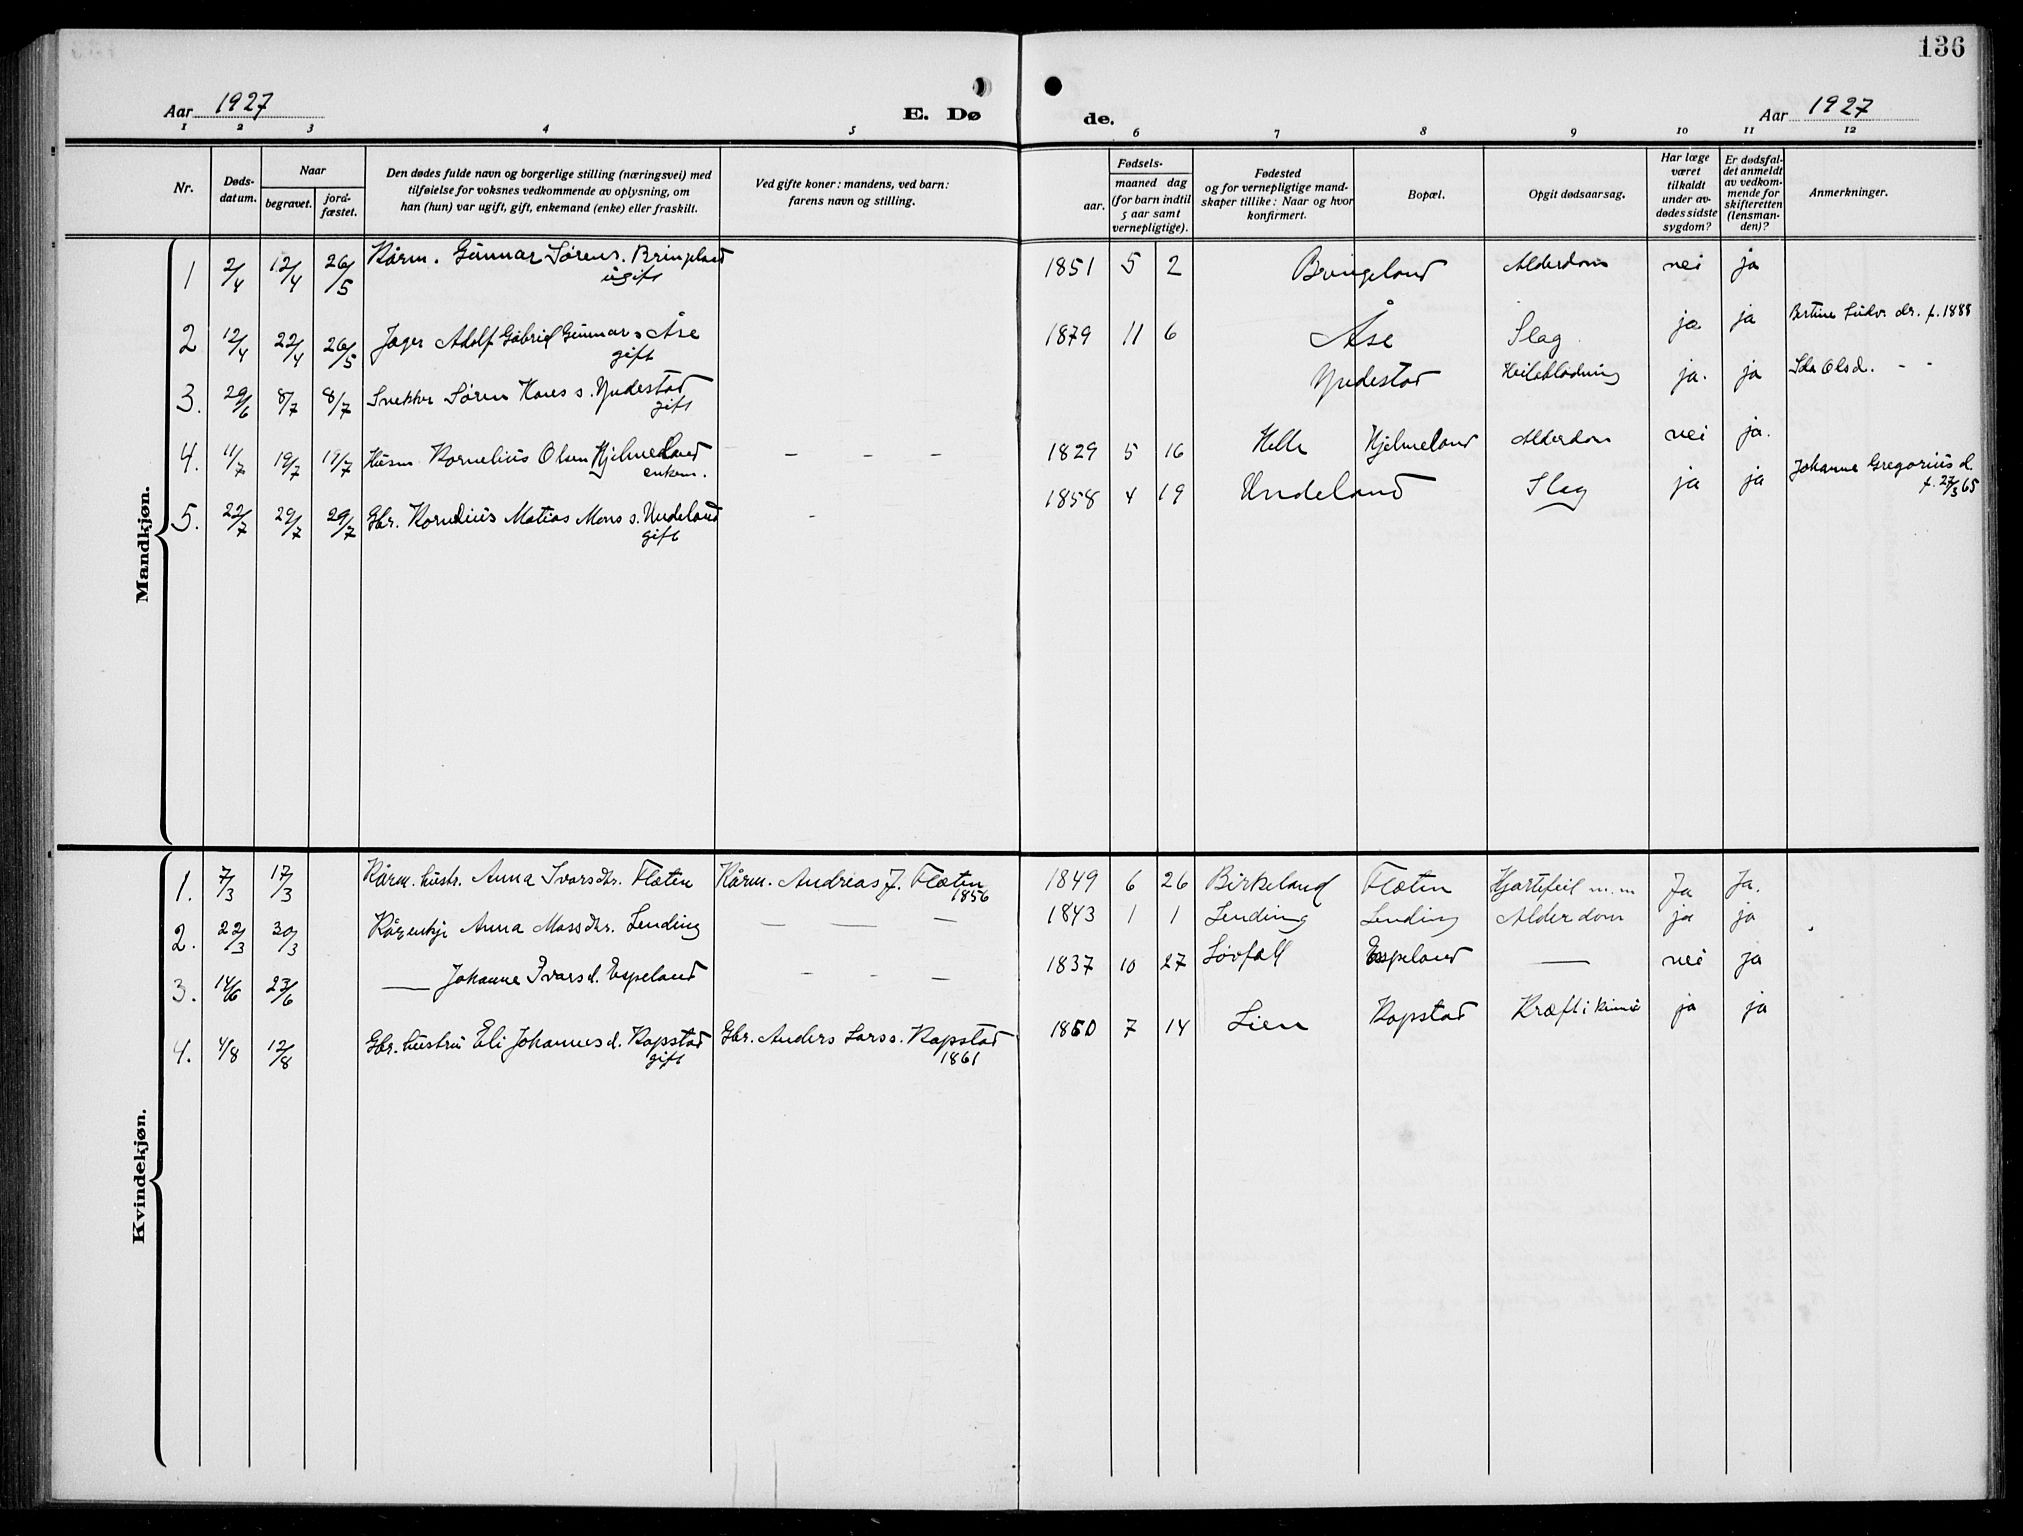 136
Aar 1927
E. Dø
de.
Aar 1927
1 2 3 4 5 6 7 8 9 10 11 12
Nr.
Døds-
datum.
Naar
begravet.
jord-
fæstet.
Den dødes fulde navn og borgerlige stilling (næringsvei) med
tilføielse for voksnes vedkommende av oplysning, om
han (hun) var ugift, gift, enkemand (enke) eller fraskilt.
Ved gifte koner: mandens, ved barn:
farens navn og stilling.
Fødsels-
aar.
maaned dag
(for barn indtil
5 aar samt
vernepligtige).
Fødested
og for vernepligtige mand-
skaper tillike: Naar og hvor
konfirmert.
Bopæl.
Opgit dødsaarsag.
Har læge
været
tilkaldt
under av-
dødes sidste
sygdom?
Er dødsfal-
det anmeldt
av vedkom-
mende for
skifteretten
(lensman-
den)?
Anmerkninger.
Mandkjøn.
1 2/4 12/4 26/5 Kårm. Gunnar Sørens. Bringeland 1851 5 2 Bringeland Alderdom nei ja
ugift
2 12/4 22/4 26/5 Jæger Adolf Gabriel Gunnar s. Åse 1879 11 6 Åse Slag ja ja Bertine Ludv. dr. f. 1888
gift
3. 29/6 8/7 8/7 Snekker Søren Hans s. Yndestad Yndestad ja. ja Ida Olsd. - -
gift
4. 11/7 19/7 19/7 Husm. Kornelius Olsen Hjelmeland - - - 1829 5 16 Helle Hjelmeland Alderdom nei ja.
enkem.
5. 22/7 29/7 29/7 Gbr. Kornelius Matias Mons s. Undeland - 1858 4 19 Undeland Slag ja ja Johanne Gregorius d.
gift
f. 27/3 65
Kvindekjøn.
1. 7/3 17/3 Kårm. hustr. Anna Ivarsdtr. Flæten Kårm. Andreas J. Flæten 1849 6 26 Birkeland Flæten Hjertefeil m.m Ja Ja.
1856
2. 22/3 30/3 Kårenkje Anna Monsdtr. Lending — — — 1843 1 1 Lending Lending Alderdom ja ja
3. 14/6 23/6 — Johanne Ivarsd. Espeland - - — 1837 10 27 Løvfall Espeland — nei ja
4. 4/8 12/8 Gbr. hustru Eli Johannesd. Kopstad Gbr. Anders Larss. Kopstad 1860 7 14 Lien Kopstad Kræft i ja ja
gift
1861